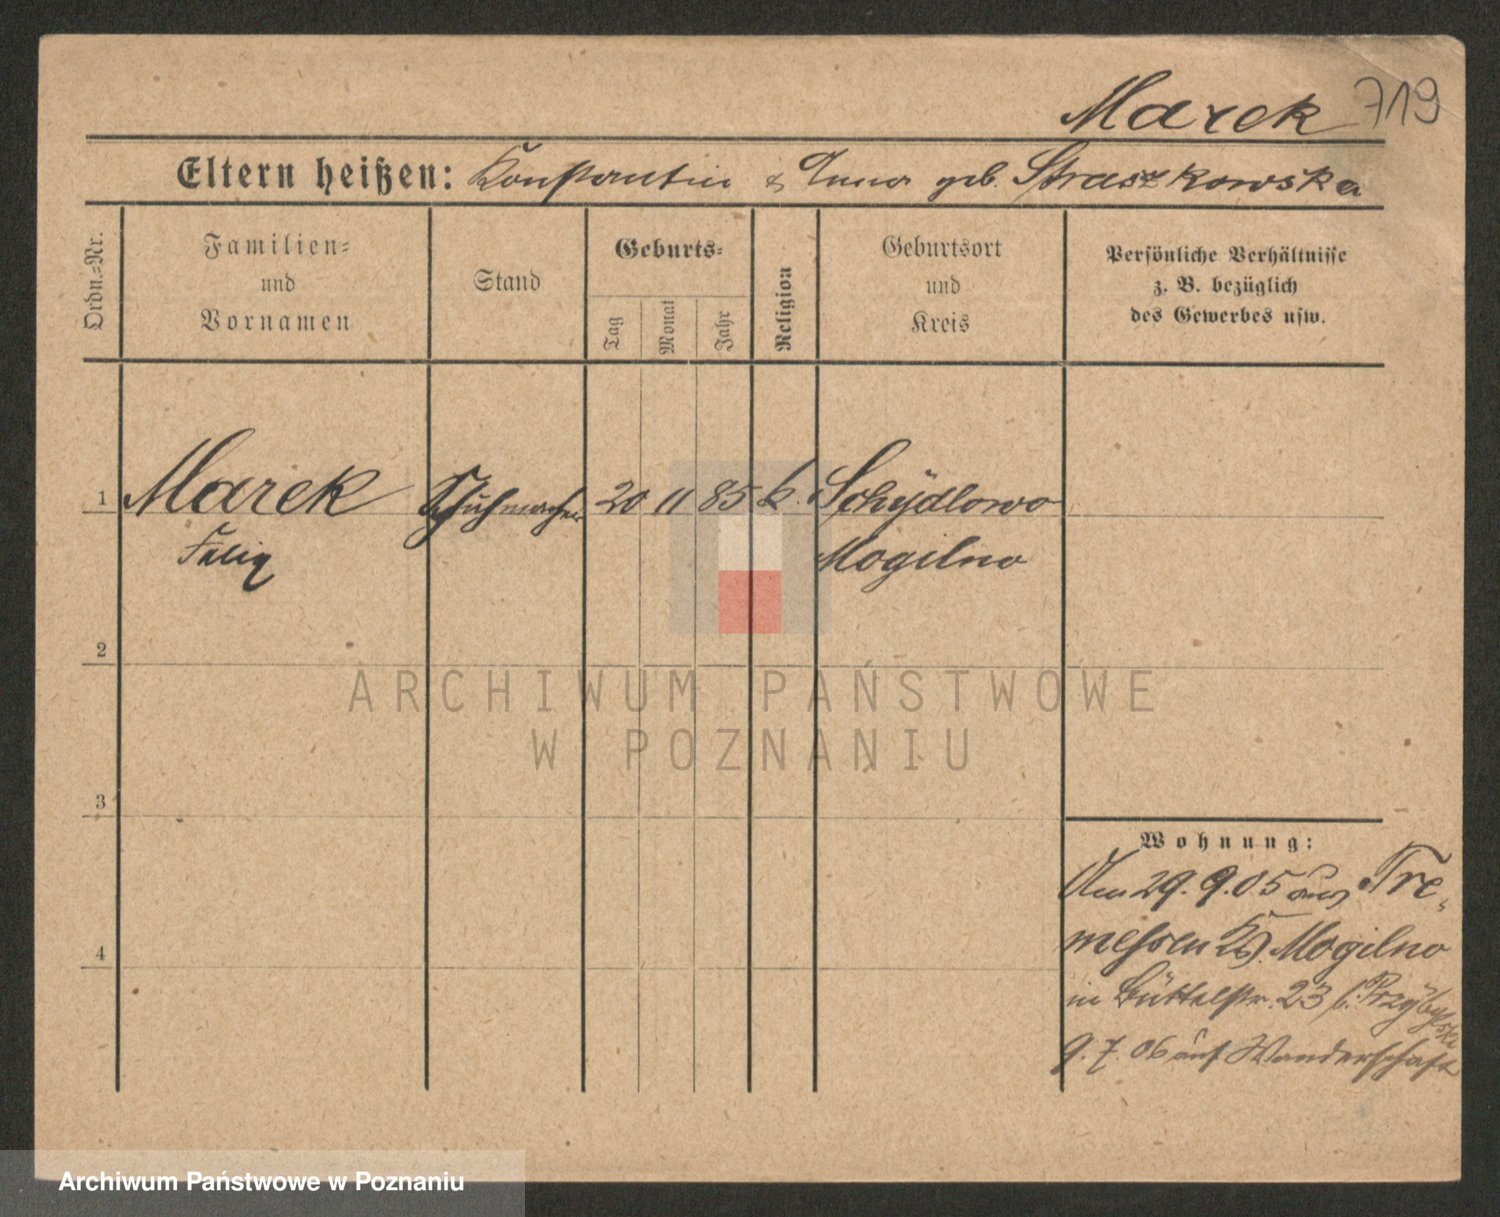 Marek 719
Eltern heißen: Konstantin & Anna geb. Straszkowska
Ordn.-Nr.
Familien-
und
Vornamen
Stand
Geburts-
Tag
Monat
Jahr
Religion
Geburtsort
und
Kreis
Persönliche Verhältnisse
z. B. bezüglich
des Gewerbes usw.
1 Marek Schuhmacher 20 11 85 k. Schÿdlowo
Felix Mogilno
2
ARCHIWUM PAŃSTWOWE
W POZNANIU
3
Wohnung:
Am 29. 9. 05 aus Tre-
messen Mogilno
4
in Büttelstr. 23 b. Przÿbÿlski
9. 7. 06 auf Wanderschaft
Archiwum Państwowe w Poznaniu